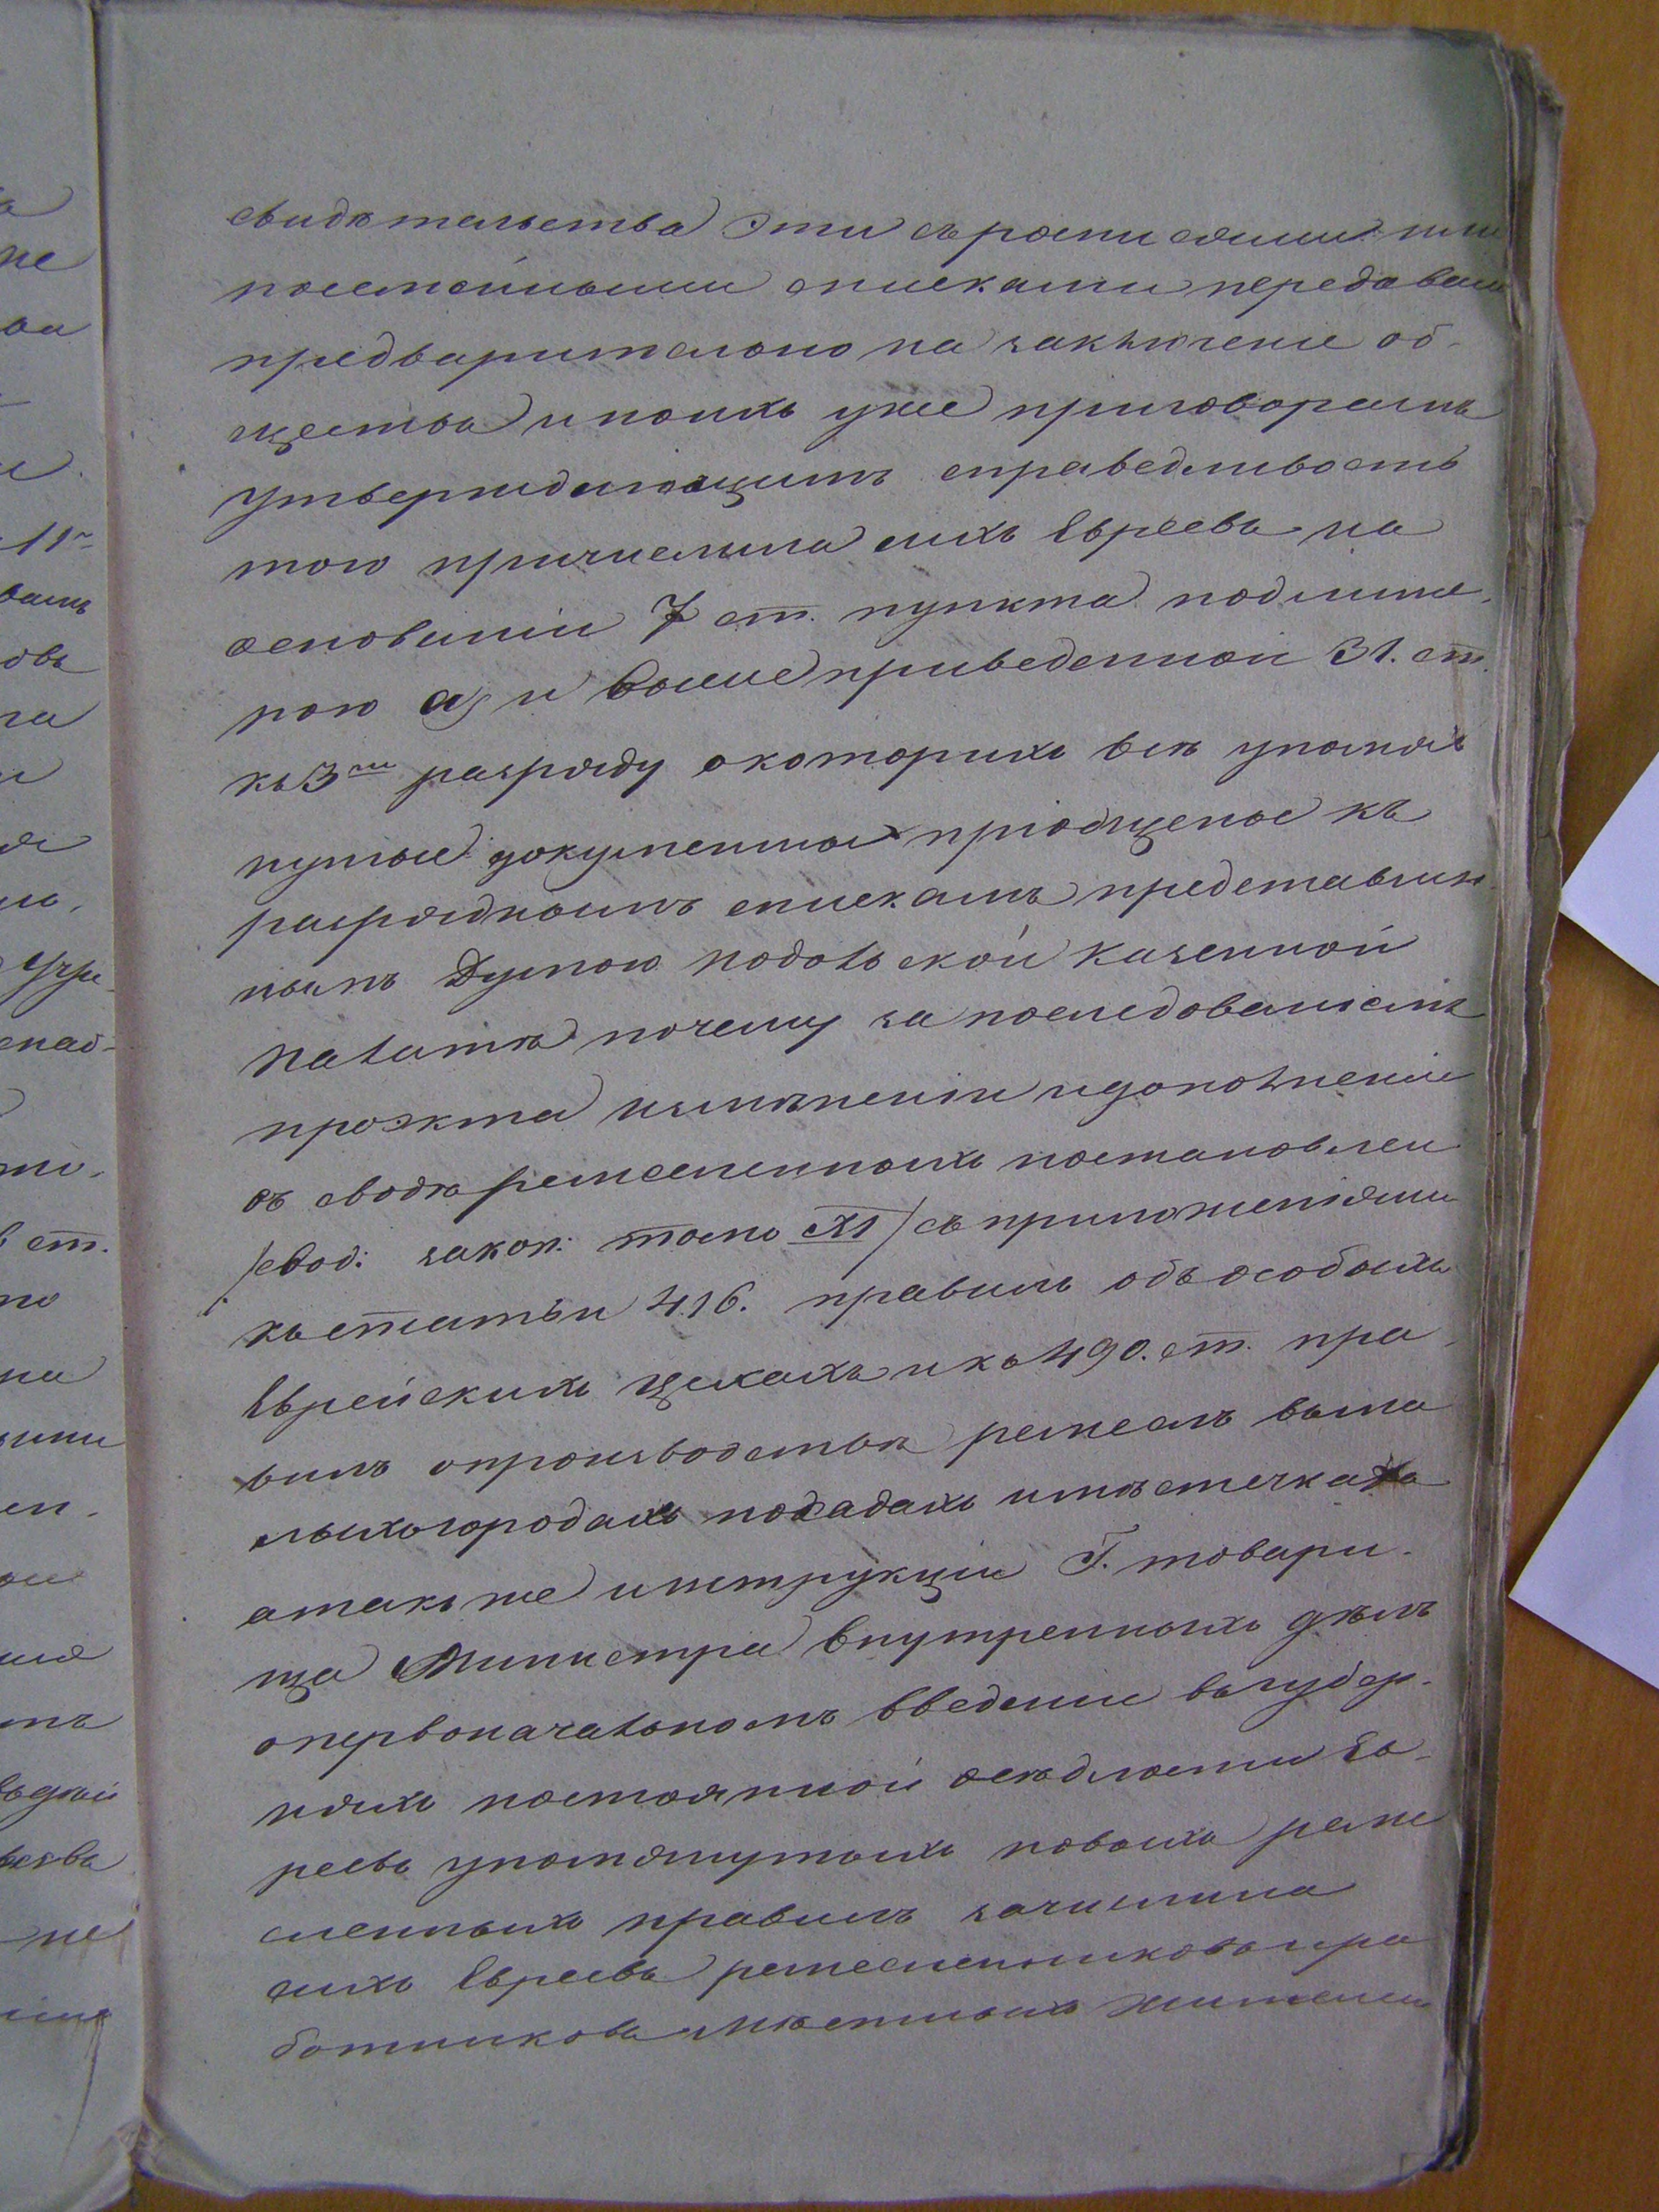 свидѣтельства эти съ росписями или
посемейными списками передавала
предварительно на заключеніе об-
щества и по ихъ уже приговорамъ
утверждающимъ справедливость
того причислила сихъ Евреевъ на
основаніи 7 ст. пункта подлите-
рою а) и вышеприведенной 31. ст.
къ 3му разряду о которихъ всѣ упомя
нутые документы пріобщеные къ
разряднымъ спискамъ представлен-
нымъ Думою Подольской Казенной
Палатѣ почему за последованіемъ
проэкта измѣненіи и дополненіи
въ сводѣ ремесленныхъ постановлен
/свод: закон: томъ XI/ съ приложеніями
къ статьи 416. правилъ объ особыхъ
Еврейскихъ цехахъ и къ 490. ст. пра-
вилъ о производствѣ ремеслъ въ ма
лыхъ городахъ посадахъ и мѣстечкахъ
а такъ же инструкціи Г. товари-
ща Министра внутренныхъ дѣлъ
о первоначальномъ введеніи въ губер-
ніяхъ постоянной осѣдлости Ев-
реевъ упомянутыхъ новыхъ реме
сленныхъ правилъ зачислила
сихъ Евреевъ ремесленниковъ и ра
ботниковъ мѣстныхъ жителей
не
11
ст.
на
не